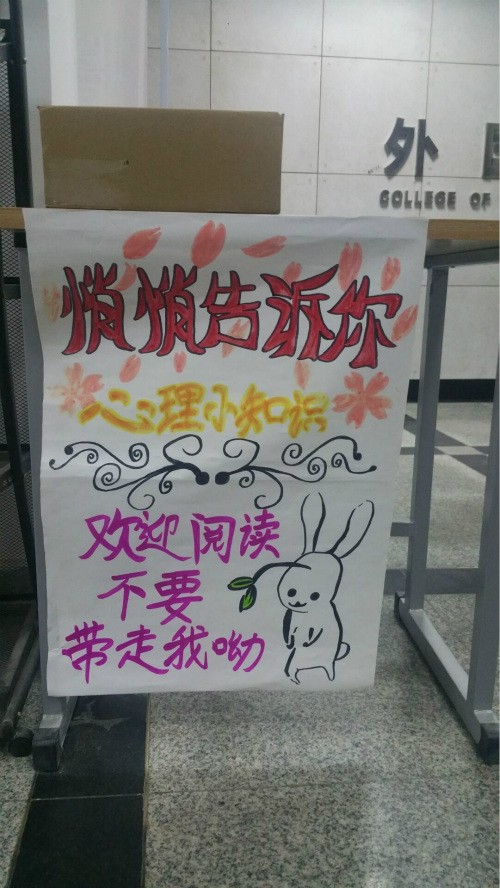 外
COLLEGE OF
悄悄告诉你
心理小知识
欢迎阅读
不要
带走我呦